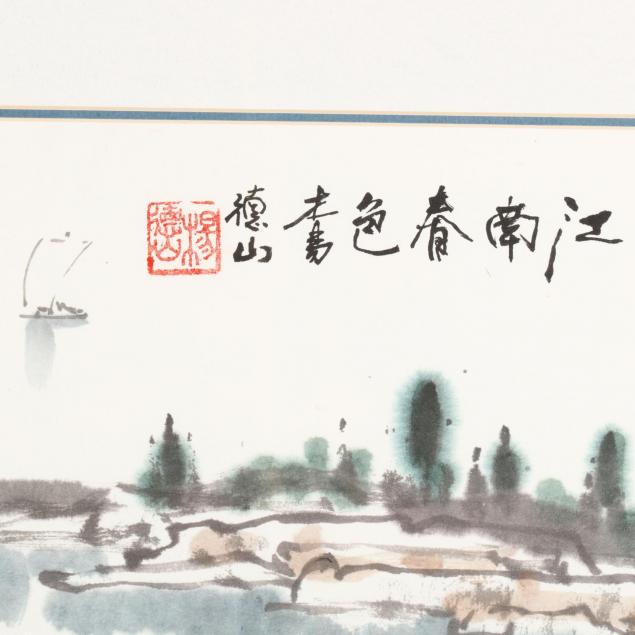 江南春色
德山
楊德山